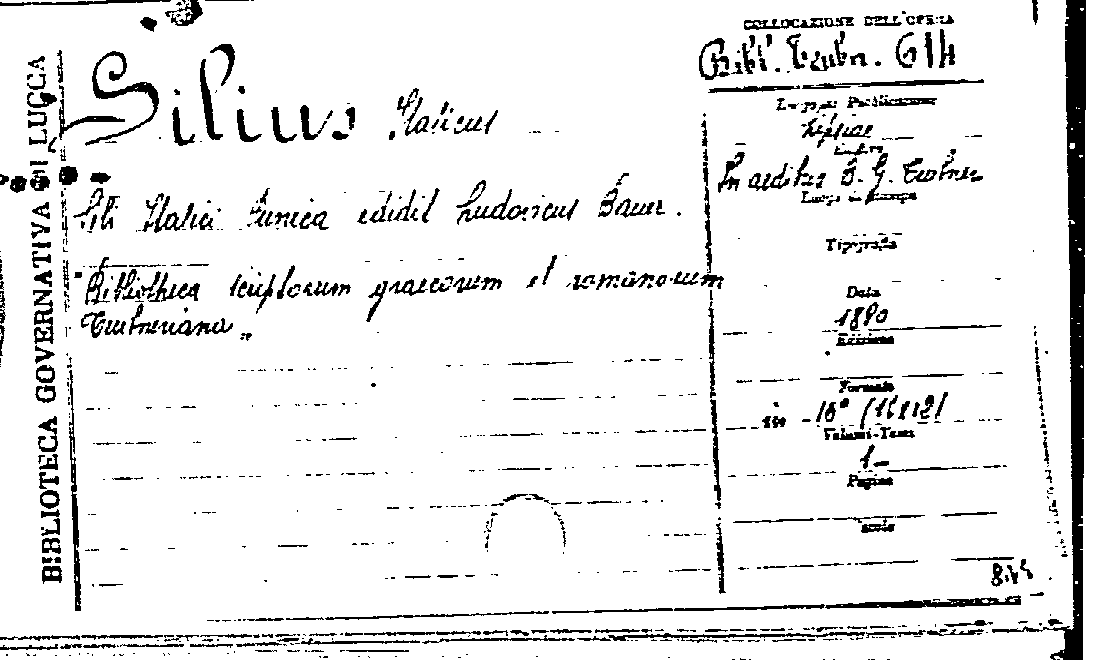 BIBLIOTECA GOVERNATIVA DI LUCCA
COLLOCAZIONE DELL'OPERA
Bibl. Teubn. 614
Silius Italicus
Sili Italici Punica edidit Ludovicus Bauer.
"Bibliotheca scriptorum graecorum et romanorum
Teubneriana„
Luogo di Pubblicazione
Lipsiae
In aedibus B. G. Teubner
Luogo di Stampa
Tipografia
Data
1890
Edizione
Formato
in -16°
Volumi-Tomi
1-
Pagine